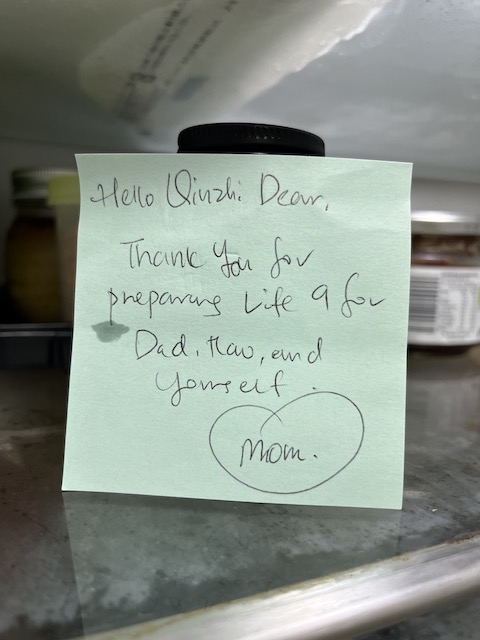 Hello Qinzhi Dear,
Thank you for
preparing Life 9 for
Dad, Hao, and
Yourself.
Mom.